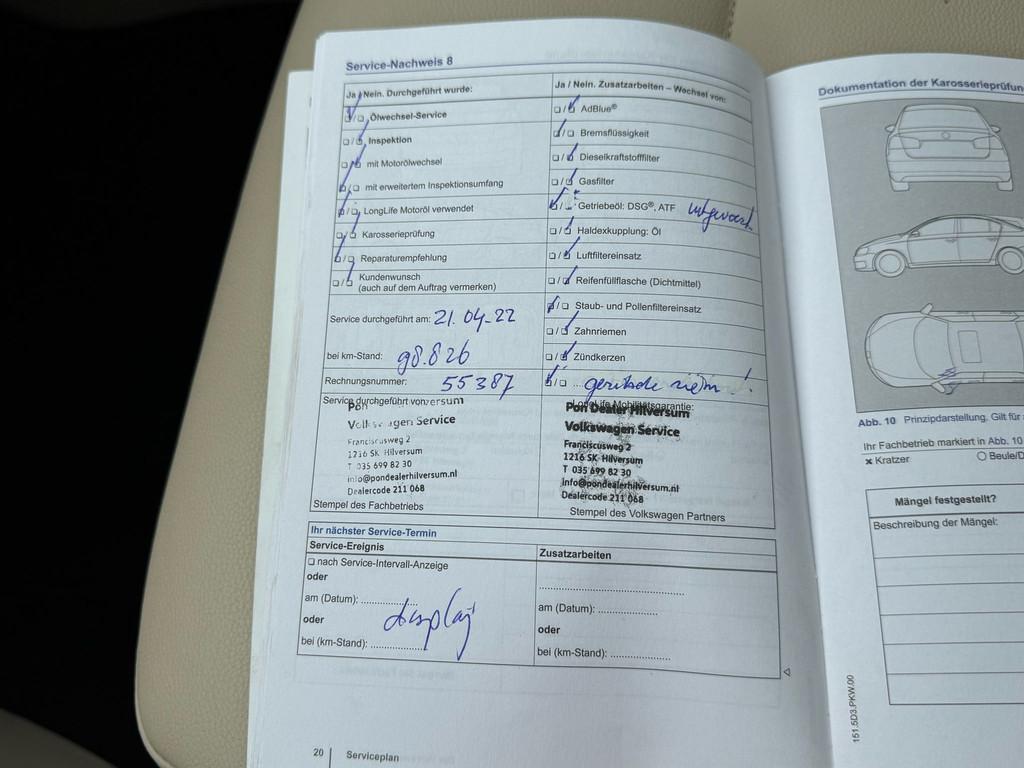 Service-Nachweis 8
Ja / Nein. Durchgeführt wurde:
Ölwechsel-Service
Inspektion
mit Motorölwechsel
mit erweitertem Inspektionsumfang
LongLife Motoröl verwendet
Karosserieprüfung
Reparaturempfehlung
Kundenwunsch
(auch auf dem Auftrag vermerken)
Service durchgeführt am: 21.04-22
bei km-Stand: 98.826
Rechnungsnummer: 55387
Service durchgeführt von:
Pon versum
Volkswagen Service
Franciscusweg 2
1216 SK Hilversum
T 035 699 82 30
info@pondealerhilversum.nl
Dealercode 211 068
Stempel des Fachbetriebs
Ja / Nein. Zusatzarbeiten – Wechsel von:
AdBlue®
Bremsflüssigkeit
Dieselkraftstofffilter
Gasfilter
Getriebeöl: DSG®, ATF
Haldexkupplung: Öl
Luftfiltereinsatz
Reifenfüllflasche (Dichtmittel)
Staub- und Pollenfiltereinsatz
Zahnriemen
Zündkerzen
LongLife Mobilitätsgarantie:
Pon Dealer Hilversum
Volkswagen Service
Franciscusweg 2
1216 SK Hilversum
T 035 699 82 30
Info@pondealerhilversum.nl
Dealercode 211 068
Stempel des Volkswagen Partners
Ihr nächster Service-Termin
Service-Ereignis
nach Service-Intervall-Anzeige
oder
am (Datum):
oder
display
bei (km-Stand):
Zusatzarbeiten
am (Datum):
oder
bei (km-Stand):
20 | Serviceplan
Dokumentation der Karosserieprüfun
Abb. 10 Prinzipdarstellung. Gilt für
Ihr Fachbetrieb markiert in Abb. 10
× Kratzer
Beule/D
Mängel festgestellt?
Beschreibung der Mängel:
151.5D3.PKW.00